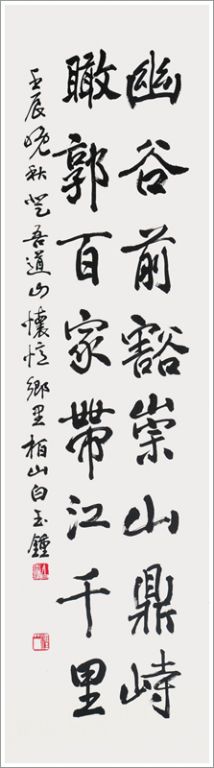 幽谷前豁崇山鼎峙
瞰郭百家帶江千里
壬辰晚秋登吾道山懷憶鄉里柏山白玉鍾